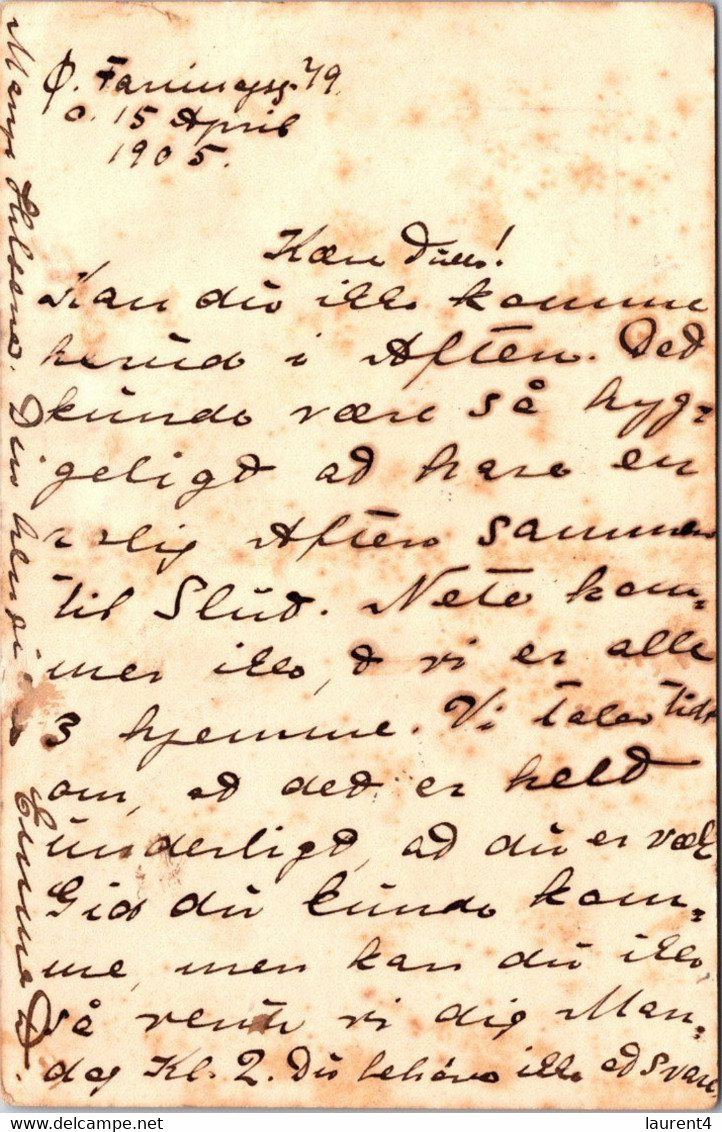 Ø. Farimagsg. 49.
d. 15 April
1905.
Kære
Kan du ikke komme
herud i Aften. Det
kunde være så hyg-
geligt at have en
rolig Aften sammen
til Slut. Nete kom-
mer ikke, & vi er alle
3 hjemme. Vi taler tidt
om, at det er helt
underligt, at du er væk
Gid du kunde kom-
me, men kan du ikke,
så venter vi dig Man-
dag Kl. 2. Du behøver ikke at svare.
Mange Hilsener. Din hengivne Emma D.
laurent4